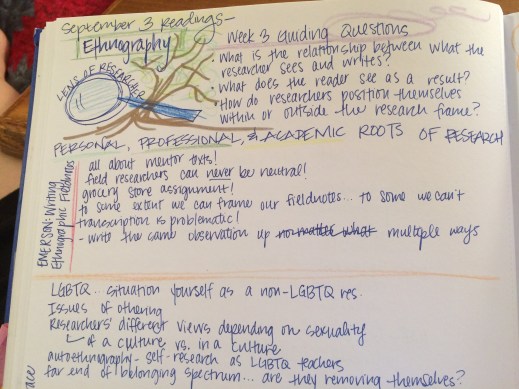 September 3 Readings-
Ethnography
LENS OF RESEARCHER
Week 3 Guiding Questions
. What is the relationship between what the
researcher sees and writes?
. What does the reader see as a result?
. How do researchers position themselves
within or outside the research frame?
PERSONAL, PROFESSIONAL, & ACADEMIC ROOTS OF RESEARCH
EMERSON: Writing
Ethnographic Fieldnotes
all about mentor texts!
field researchers can never be neutral!
grocery store assignment!
to some extent we can frame our fieldnotes... to some we can't
transcription is problematic!
- write the same observation up no matter what multiple ways
LGBTQ... situation yourself as a non-LGBTQ res.
Issues of othering
Researchers' different views depending on sexuality
of a culture vs. in a culture
autoethnography - self-research as LGBTQ teachers
far end of belonging spectrum... are they removing themselves?